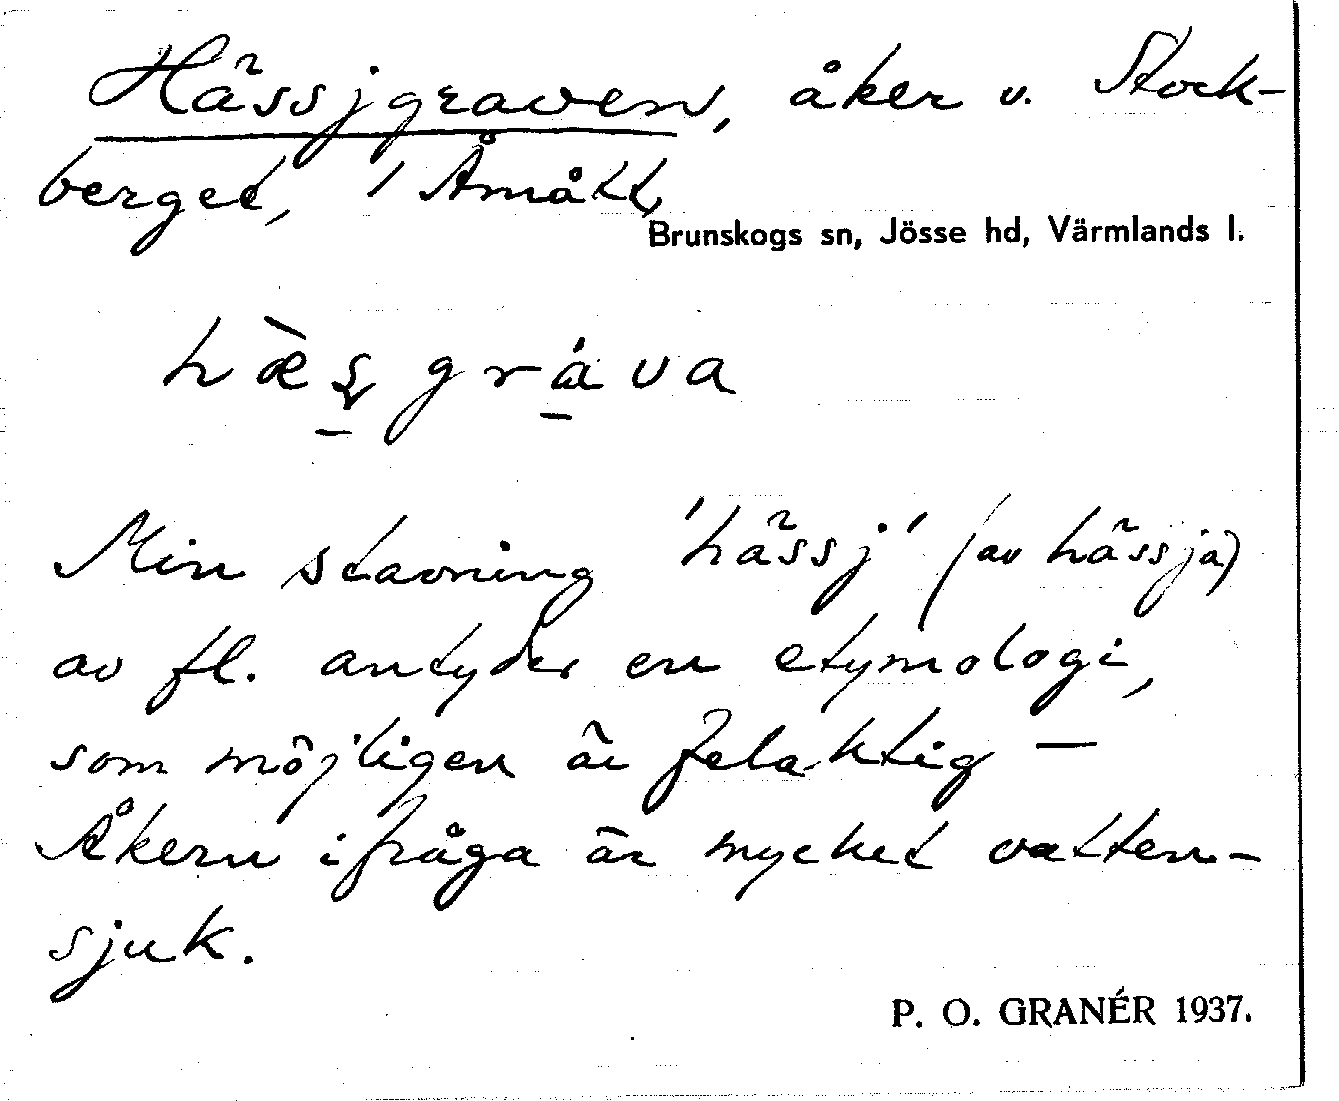 Hässjgraven, åker v. Stock-
berget, 1 Åmått,
Brunskogs sn, Jösse hd, Värmlands l.
hæ̀s̨gráva
Min stavning 'hässj' (av hässja)
av fl. antyder en etymologi,
som möjligen är felaktig —
Åkern ifråga är mycket vatten-
sjuk.
P. O. GRANÉR 1937.